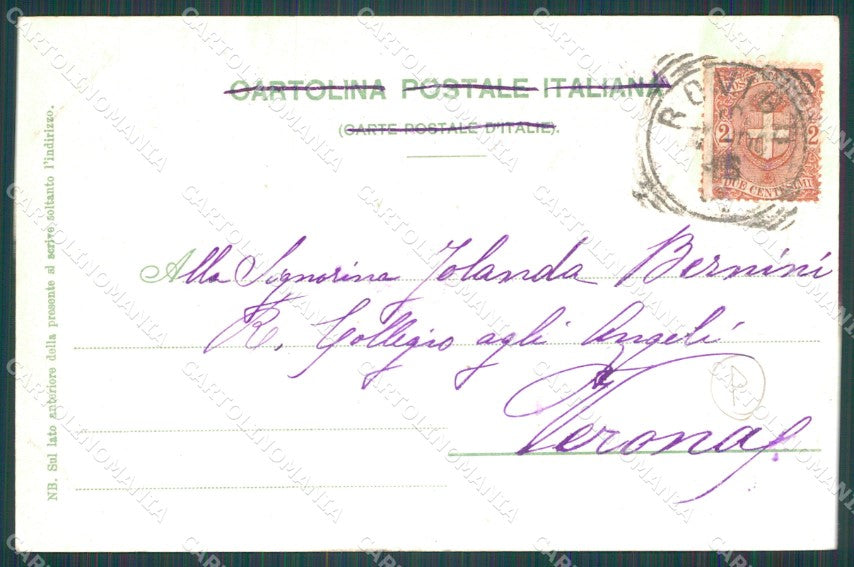 CARTOLINA POSTALE ITALIANA
(CARTE POSTALE D'ITALIE).
ROVIGO
2 2
DUE CENTESIMI
Alla Signorina Jolanda Bernini
R. Collegio agli Angeli
Verona
NB. Sul lato anteriore della presente si scrive soltanto l'indirizzo.
CARTOLINOMANIA